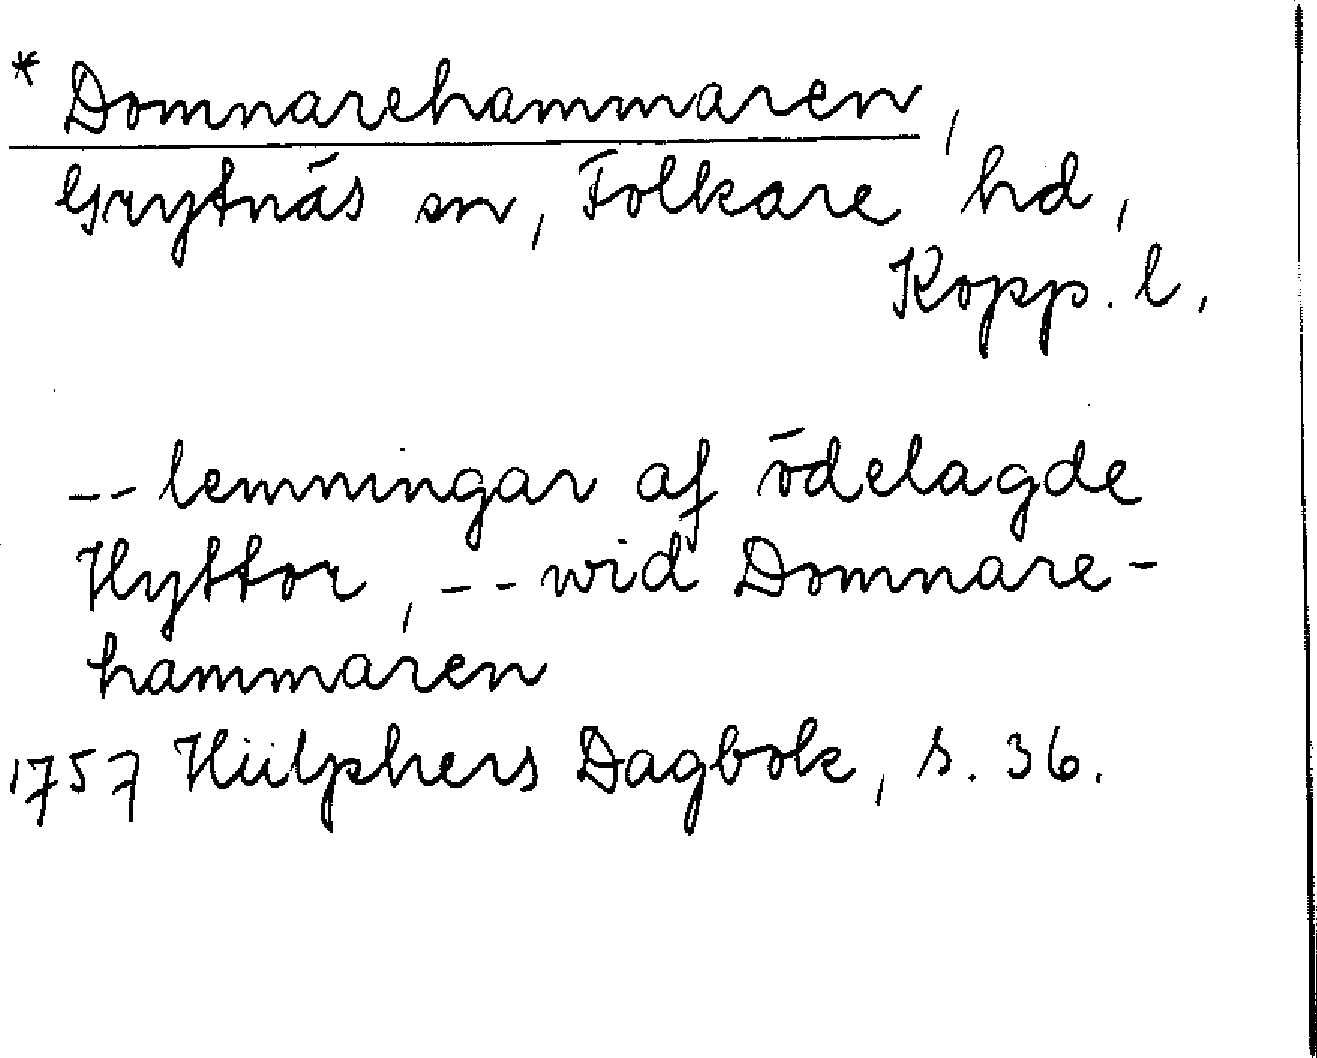 * Domnarehammaren,
Grytnäs sn, Folkare hd,
Kopp. l.
-- lemningar af ödelagde
Hyttor, -- wid Domnare-
hammaren
1757 Hülphers Dagbok, s. 36.